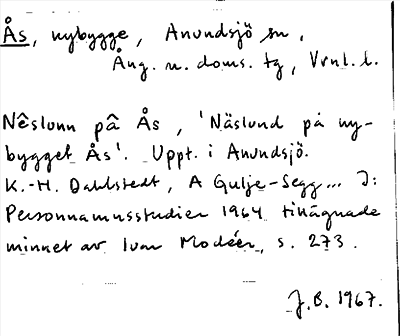 Ås, nybygge, Anundsjö sn,
Ång. n. doms. tg, Vrnl. l.
Nêslunn på̂ Ås, 'Näslund på ny-
bygget Ås'. Uppt. i Anundsjö.
K.-H. Dahlstedt, A Gulje-Segg... I:
Personnamnsstudier 1964 tillägnade
minnet av Ivar Modéer, s. 273.
J.B. 1967.